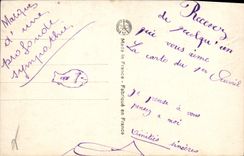 Marques
d'une
profonde
sympathie
Made in France - Fabriqué en France
Recevez
de quelqu'un
qui vous aime
La carte du 1er Avril
Je pense à vous
pensez à moi
Amitiés sincères